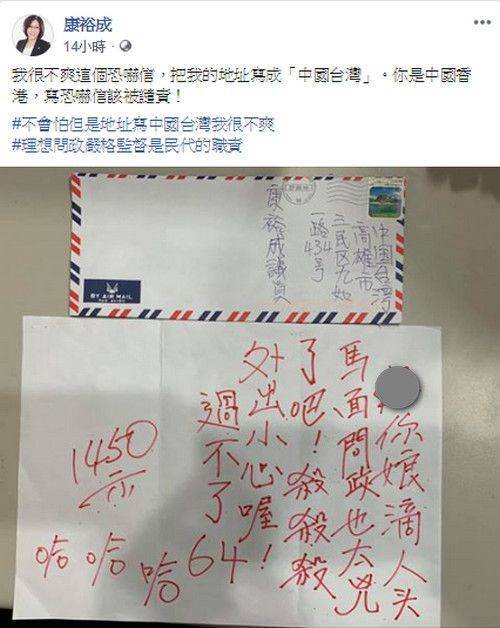 康裕成
14小時
我很不爽這個恐嚇信，把我的地址寫成「中國台灣」。你是中國香
港，寫恐嚇信該被譴責！
#不會怕但是地址寫中國台灣我很不爽
#理想問政嚴格監督是民代的職責
中国台湾
高雄市
三民区九如
一路434号
康裕成議員
BY AIR MAIL
你娘滴人头
馬面問政也太兇
了吧！殺殺殺
外出小心喔！
過不了64
1450
哈哈哈